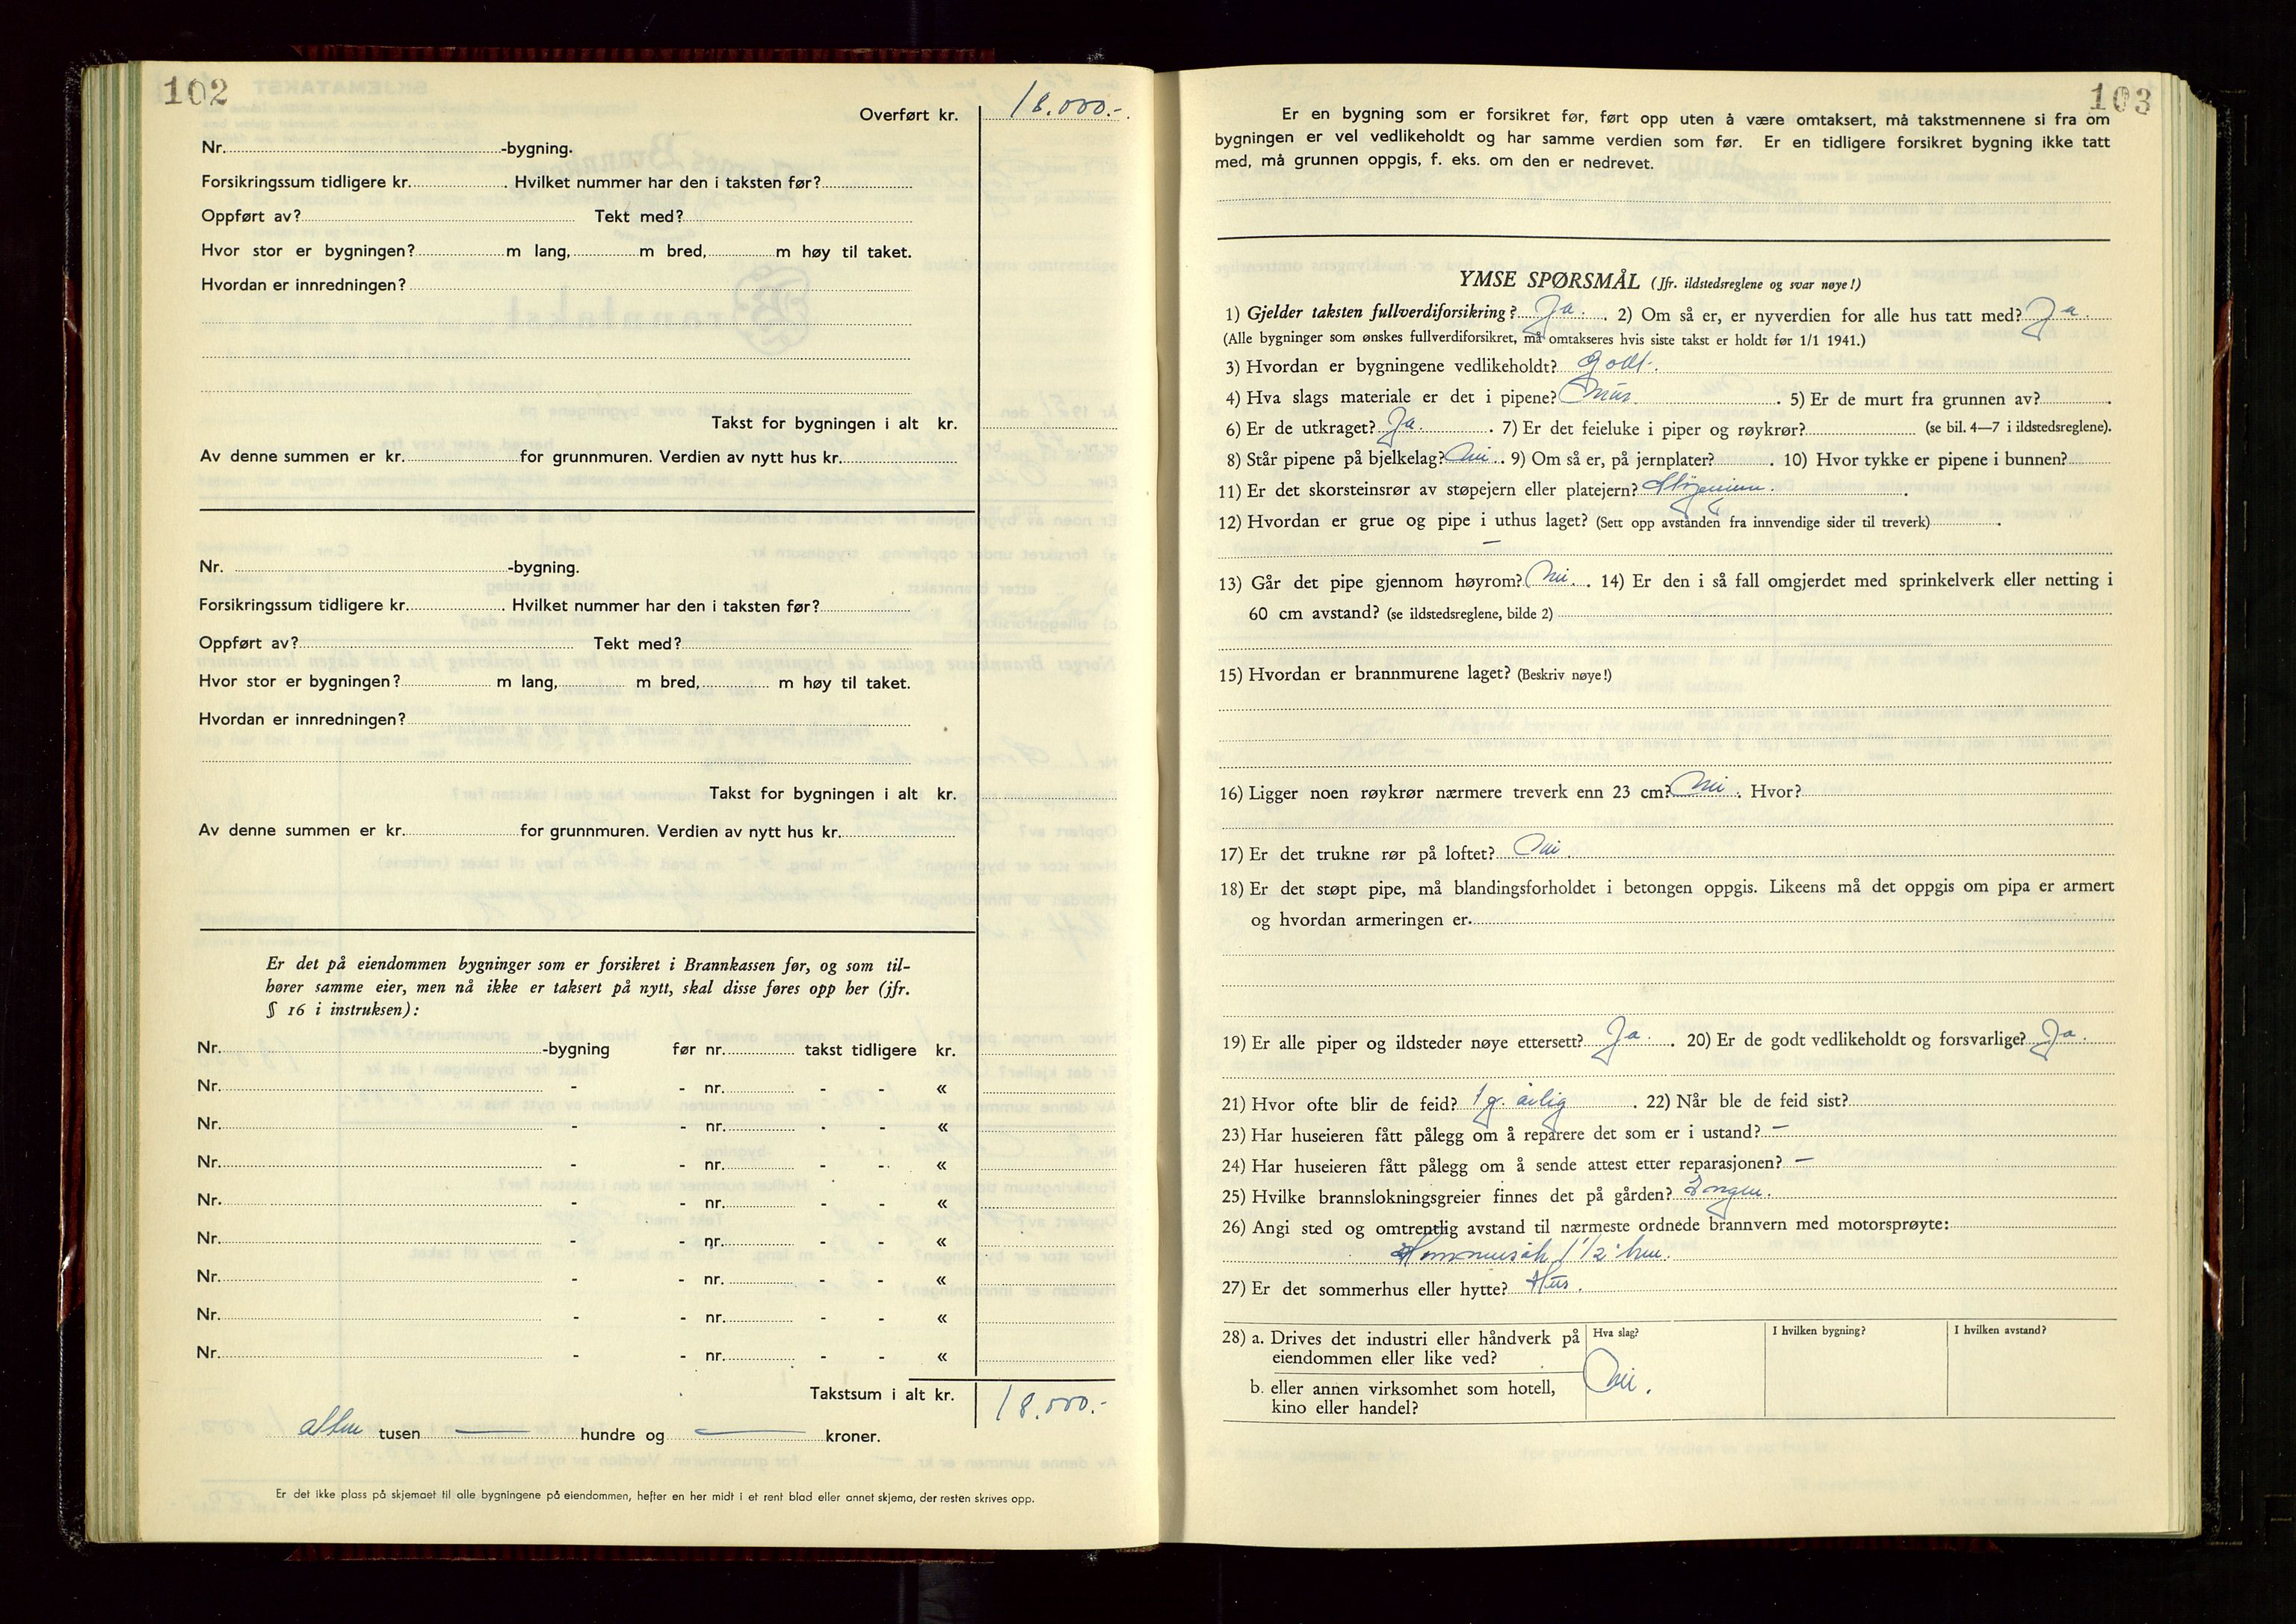 102
Overført kr. 18.000.-
Nr. -bygning.
Forsikringssum tidligere kr. . Hvilket nummer har den i taksten før?
Oppført av? Tekt med?
Hvor stor er bygningen? m lang, m bred, m høy til taket.
Hvordan er innredningen?
Takst for bygningen i alt kr.
Av denne summen er kr. for grunnmuren. Verdien av nytt hus kr.
Nr. -bygning.
Forsikringssum tidligere kr. . Hvilket nummer har den i taksten før?
Oppført av? Tekt med?
Hvor stor er bygningen? m lang, m bred, m høy til taket.
Hvordan er innredningen?
Takst for bygningen i alt kr.
Av denne summen er kr. for grunnmuren. Verdien av nytt hus kr.
Er det på eiendommen bygninger som er forsikret i Brannkassen før, og som til-
hører samme eier, men nå ikke er taksert på nytt, skal disse føres opp her (jfr.
§ 16 i instruksen):
Nr. -bygning før nr. takst tidligere kr.
Nr. - - nr. - - «
Nr. - - nr. - - «
Nr. - - nr. - - «
Nr. - - nr. - - «
Nr. - - nr. - - «
Nr. - - nr. - - «
Nr. - - nr. - - «
Nr. - - nr. - - «
Takstsum i alt kr. 18.000.-
atten tusen — hundre og — kroner.
Er det ikke plass på skjemaet til alle bygningene på eiendommen, hefter en her midt i et rent blad eller annet skjema, der resten skrives opp.
103
Er en bygning som er forsikret før, ført opp uten å være omtaksert, må takstmennene si fra om
bygningen er vel vedlikeholdt og har samme verdien som før. Er en tidligere forsikret bygning ikke tatt
med, må grunnen oppgis, f. eks. om den er nedrevet.
YMSE SPØRSMÅL (Jfr. ildstedsreglene og svar nøye!)
1) Gjelder taksten fullverdiforsikring? Ja. . 2) Om så er, er nyverdien for alle hus tatt med? Ja.
(Alle bygninger som ønskes fullverdiforsikret, må omtakseres hvis siste takst er holdt før 1/1 1941.)
3) Hvordan er bygningene vedlikeholdt? Godt.
4) Hva slags materiale er det i pipene? Mur. . 5) Er de murt fra grunnen av? .
6) Er de utkraget? Ja. . 7) Er det feieluke i piper og røykrør? (se bil. 4—7 i ildstedsreglene).
8) Står pipene på bjelkelag? Nei. . 9) Om så er, på jernplater? . 10) Hvor tykke er pipene i bunnen?
11) Er det skorsteinsrør av støpejern eller platejern? .
12) Hvordan er grue og pipe i uthus laget? (Sett opp avstanden fra innvendige sider til treverk) .
—
13) Går det pipe gjennom høyrom? Nei. . 14) Er den i så fall omgjerdet med sprinkelverk eller netting i
60 cm avstand? (se ildstedsreglene, bilde 2)
15) Hvordan er brannmurene laget? (Beskriv nøye!)
16) Ligger noen røykrør nærmere treverk enn 23 cm? Nei . Hvor?
17) Er det trukne rør på loftet? Nei.
18) Er det støpt pipe, må blandingsforholdet i betongen oppgis. Likeens må det oppgis om pipa er armert
og hvordan armeringen er.
19) Er alle piper og ildsteder nøye ettersett? Ja. . 20) Er de godt vedlikeholdt og forsvarlige? Ja.
21) Hvor ofte blir de feid? 1 g. årlig . 22) Når ble de feid sist?
23) Har huseieren fått pålegg om å reparere det som er i ustand? —
24) Har huseieren fått pålegg om å sende attest etter reparasjonen? —
25) Hvilke brannslokningsgreier finnes det på gården? Ingen.
26) Angi sted og omtrentlig avstand til nærmeste ordnede brannvern med motorsprøyte:
1 1/2 km.
27) Er det sommerhus eller hytte? Hus.
28) a. Drives det industri eller håndverk på
eiendommen eller like ved?
b. eller annen virksomhet som hotell,
kino eller handel?
Hva slag? I hvilken bygning? I hvilken avstand?
Nei.